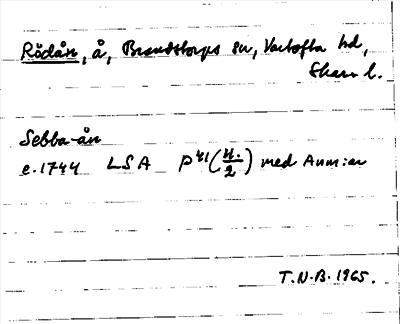 Rödån, å, Brandstorps sn, Vartofta hd,
Skara l.
Sebba-ån
e. 1744 LSA P41 (H./2) med Anm:ar
T.N.B. 1965.